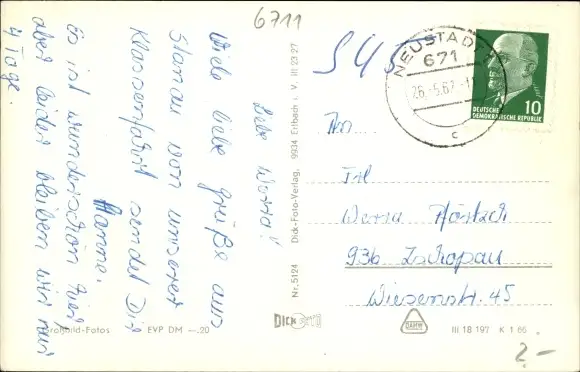 6711
Liebe Werra!
Viele liebe Grüße aus
von unserer
Klassenfahrt sendet Dir
Hanne.
Es ist wunderschön hier,
aber leider bleiben wir nur
4 Tage.
Großbild-Fotos EVP DM -.20
Nr. 5124 Dick-Foto-Verlag, 9934 Erlbach i. V. III 23 27
DICK
545
NEUSTADT
671
26.-5.67
c
DEUTSCHE
DEMOKRATISCHE REPUBLIK
10
An
Frl
Werra
936 Zschopau
Wiesenstr. 45
III 18 197 K 1 66
2,-